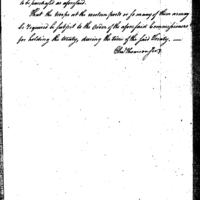 to be purchased as aforesaid.
That the troops at the western posts or so many of them as may
be required be subject to the Orders of the aforesaid Commissioners
for holding the treaty, during the term of the said treaty. —
Chas Thomson Secy.